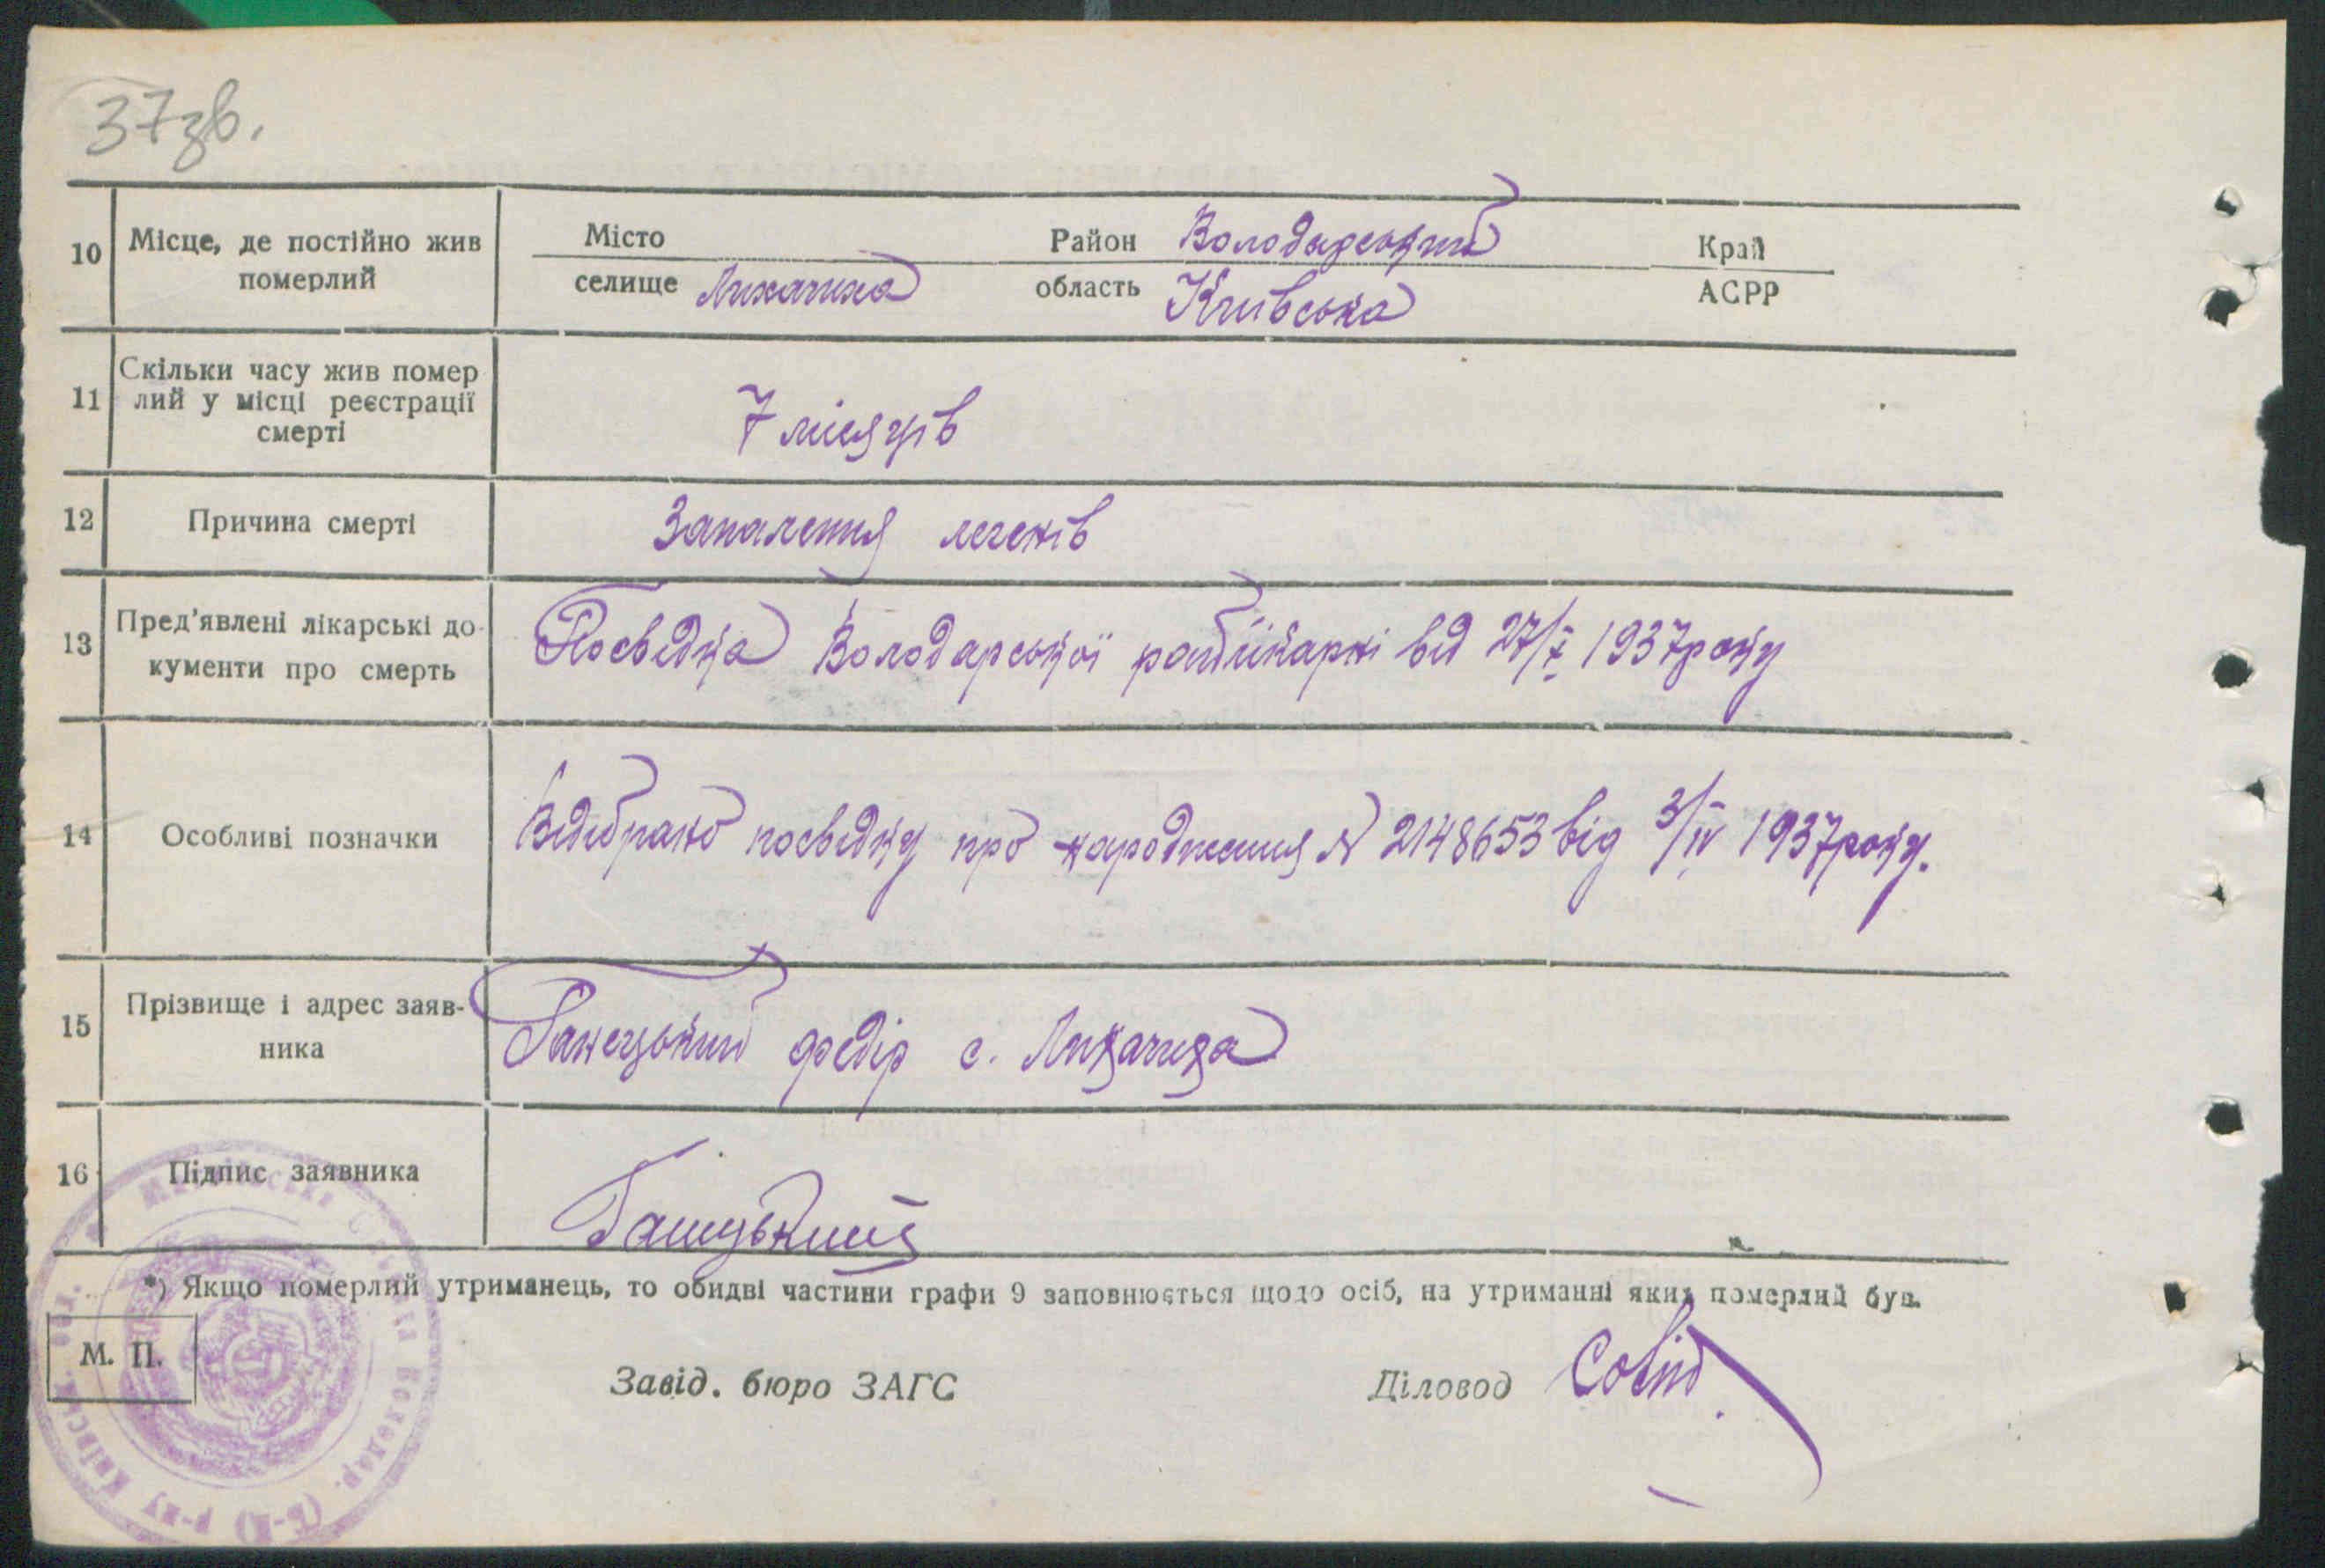 37зв.
10 Місце, де постійно жив померлий
Місто Район Володарський Край
селище Лихачиха область Київська АСРР
11 Скільки часу жив помер
лий у місці реєстрації
смерті
7 місяців
12 Причина смерті Запалення легенів
13 Пред'явлені лікарські до-
кументи про смерть
Посвідка Володарської райлікарні від 27/X 1937року
14 Особливі позначки
Відібрано посвідку про народження № 2148653 від 3/IV 1937року.
15 Прізвище і адрес заяв-
ника
федір с. Лихачиха
16 Підпис заявника
*) Якщо померлий утриманець, то обидві частини графи 9 заповнюється щодо осіб, на утриманні яких померлий був.
М. П.
Завід. бюро ЗАГС Діловод
Сільрада Володар. (Б-Ц) р-ну Київськ.